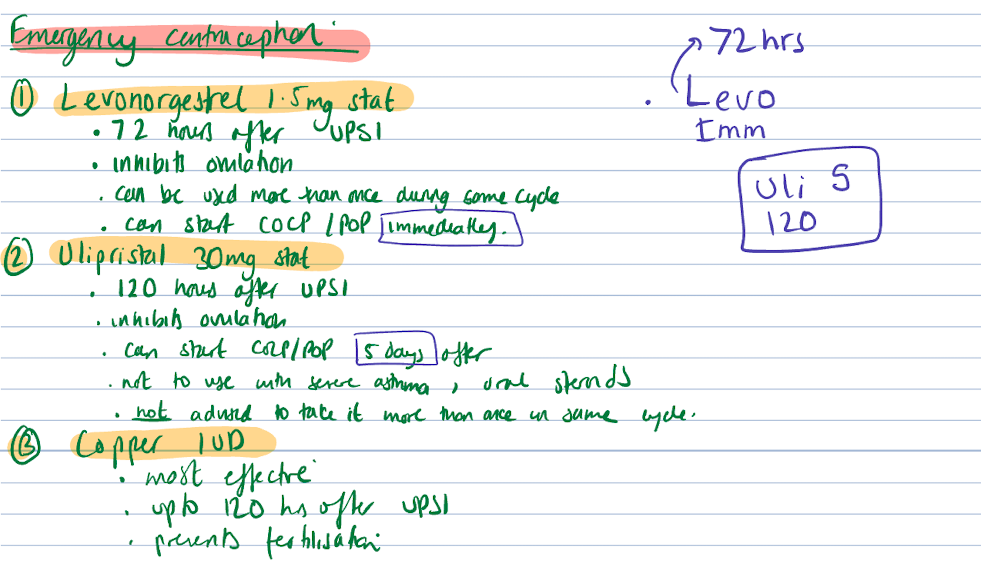 Emergency contraception
① Levonorgestrel 1.5mg stat
• 72 hours after UPSI
• inhibits ovulation
• can be used more than once during same cycle
• can start COCP / POP immediately.
② Ulipristal 30mg stat
• 120 hours after UPSI
• inhibits ovulation
• can start COCP/POP 5 days after
• not to use with severe asthma, oral steroids
• not advised to take it more than once in same cycle.
③ Copper IUD
• most effective
• upto 120 hrs after UPSI
• prevents fertilisation
72 hrs
• Levo
Imm
Uli 5
120